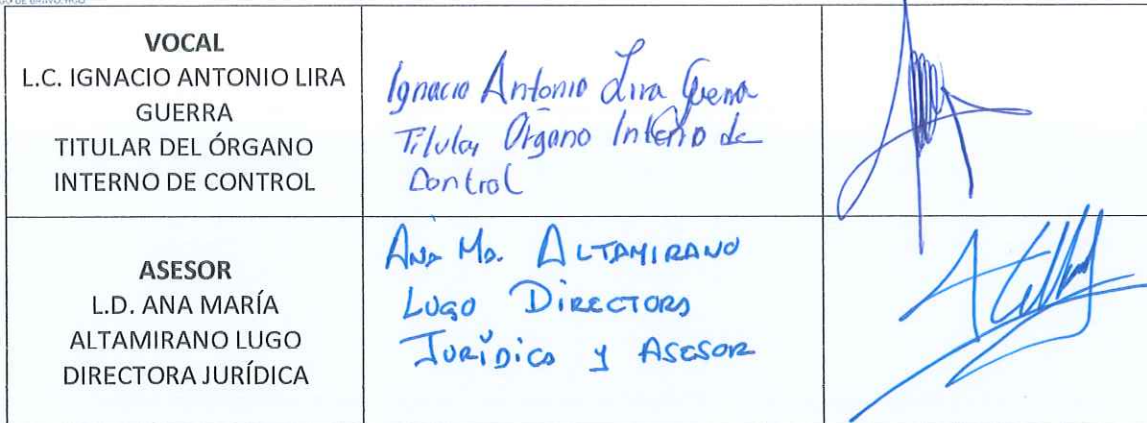 VOCAL
L.C. IGNACIO ANTONIO LIRA
GUERRA
TITULAR DEL ÓRGANO
INTERNO DE CONTROL
Ignacio Antonio Lira Guerra
Titular Órgano Interno de
Control
ASESOR
L.D. ANA MARÍA
ALTAMIRANO LUGO
DIRECTORA JURÍDICA
Ana Ma. ALTAMIRANO
LUGO DIRECTORA
JURÍDICA y ASESOR